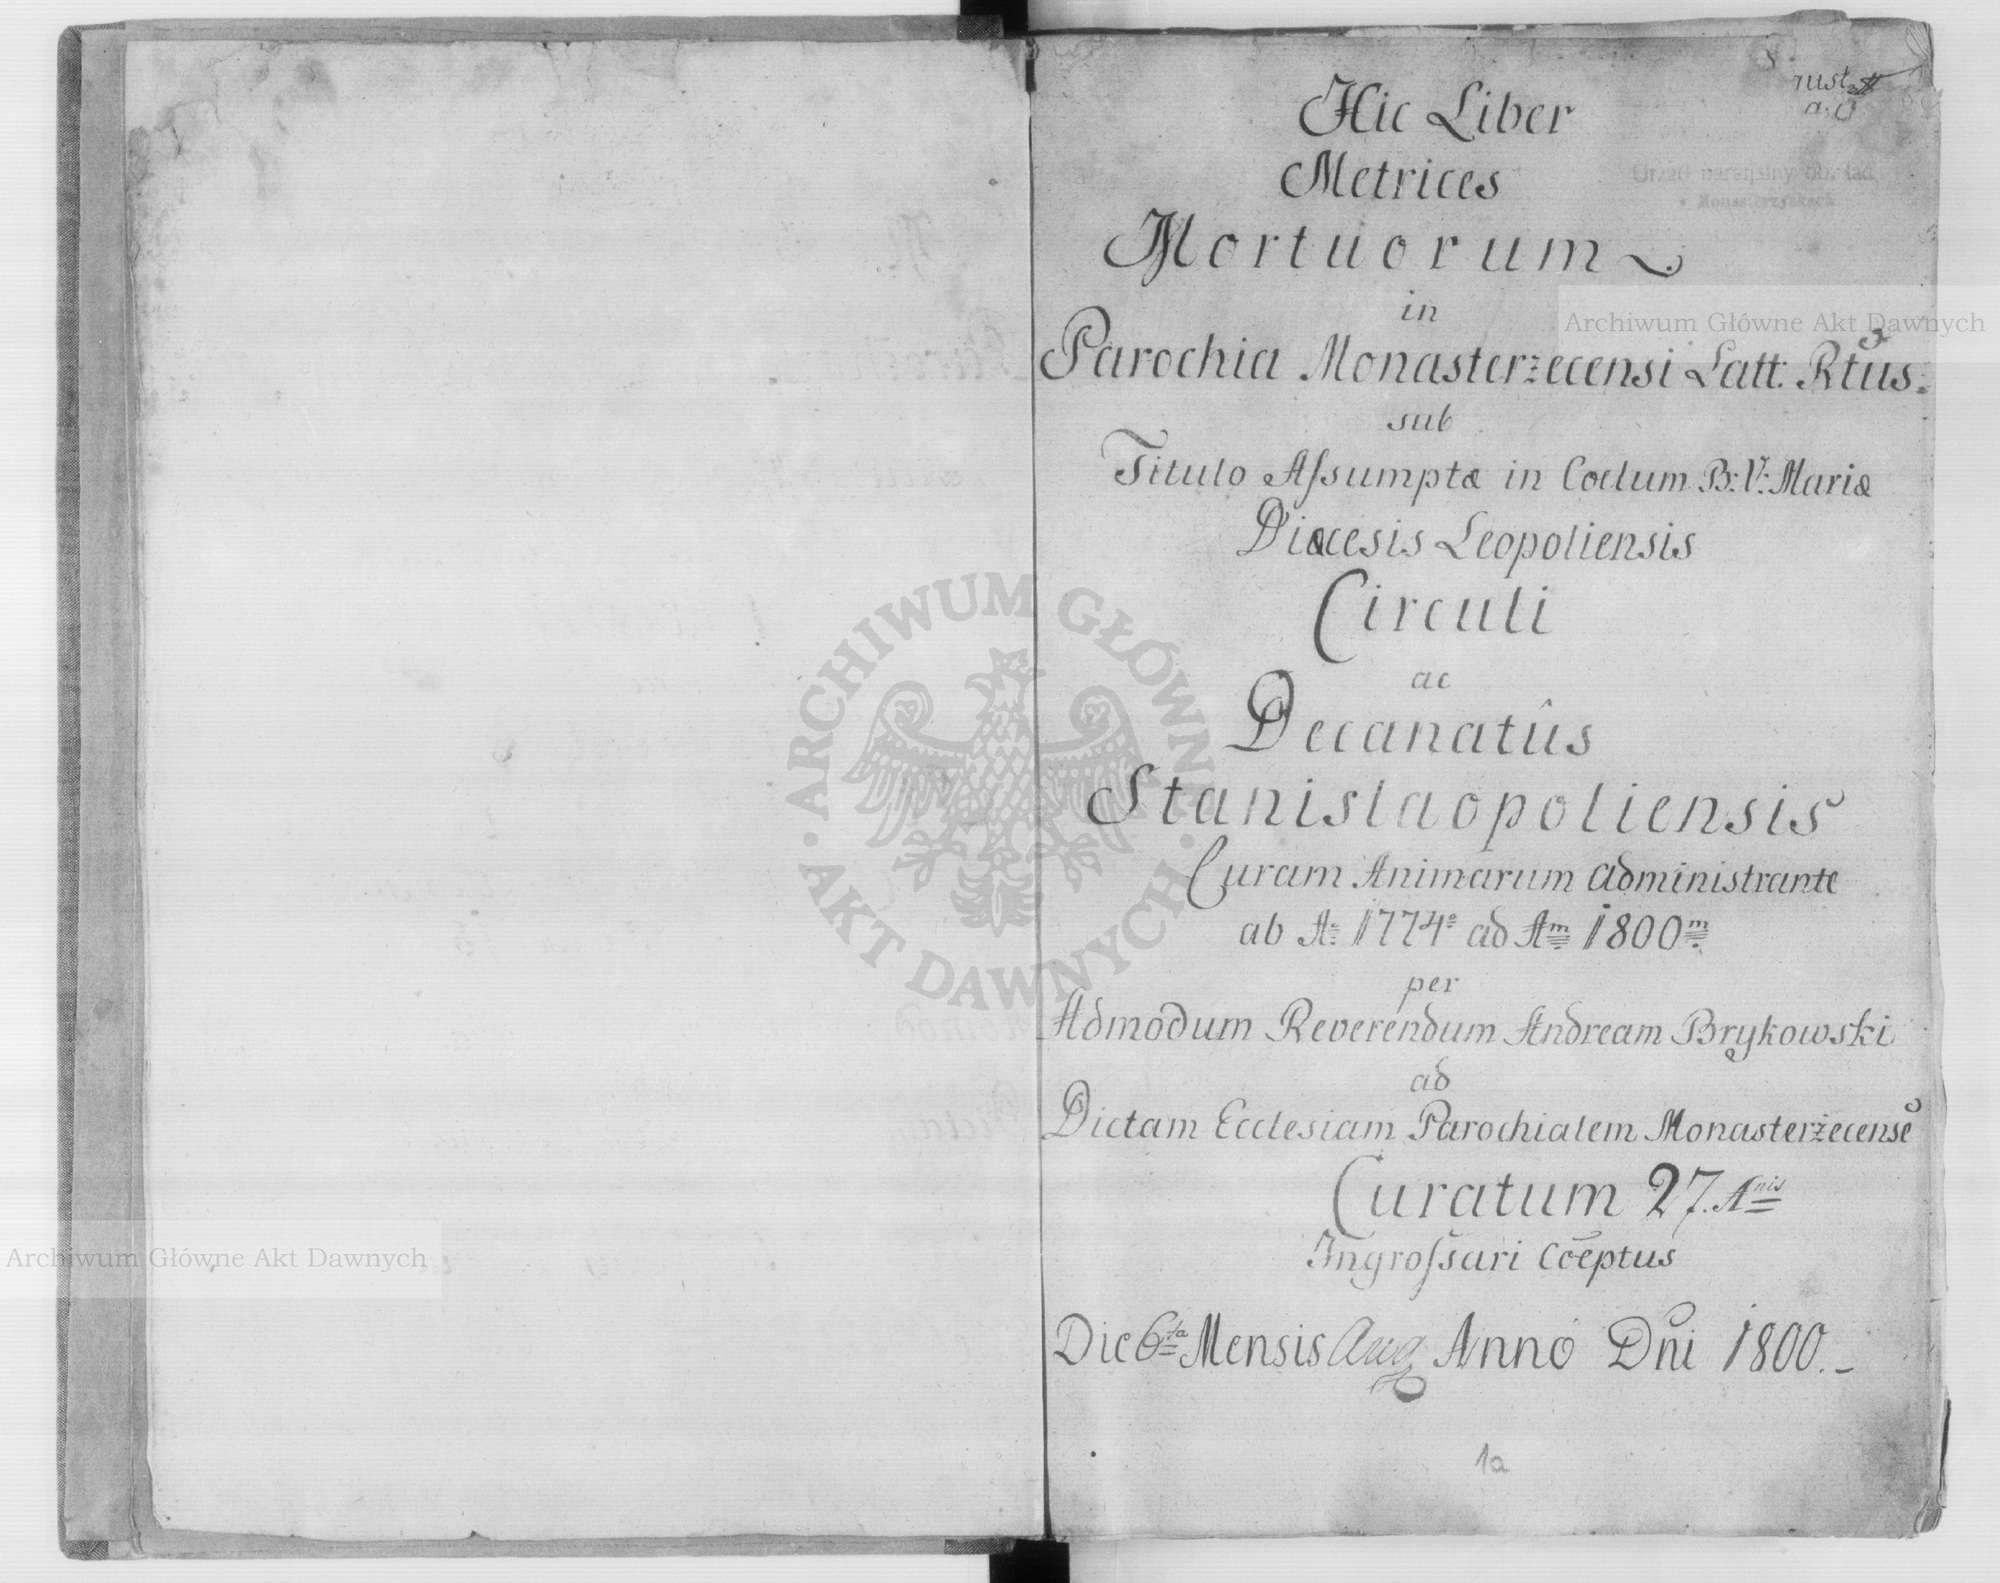 Hic Liber
Metrices
Mortuorum
in
Parochia Monasterzecensi Latt: Rtûs
sub
Titulo Aſsumptæ in Coelum B: V: Mariæ
Diæcesis Leopoliensis
Circuli
ac
Decanatûs
Stanislaopoliensis
Curam Animarum administrante
ab Aº 1774º ad Am 1800m
per
Admodum Reverendum Andream Brykowski
ad
Dictam Ecclesiam Parochialem Monasterzecensē
Curatum 27. Anis
Ingroſsari Cœptus
Die 6ta Mensis Aug Anno Dni 1800.
1a
Urząd parafjalny ob. łac.
Archiwum Główne Akt Dawnych
Archiwum Główne Akt Dawnych
ARCHIWUM GŁÓWNE AKT DAWNYCH